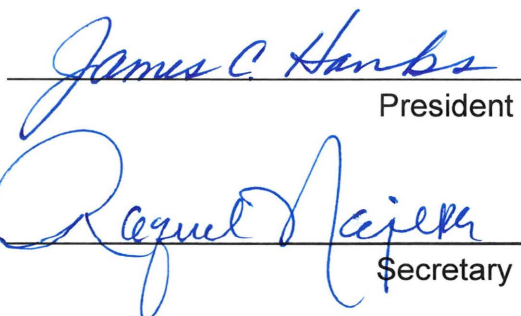 James C. Hanks
President
Raquel Najera
Secretary